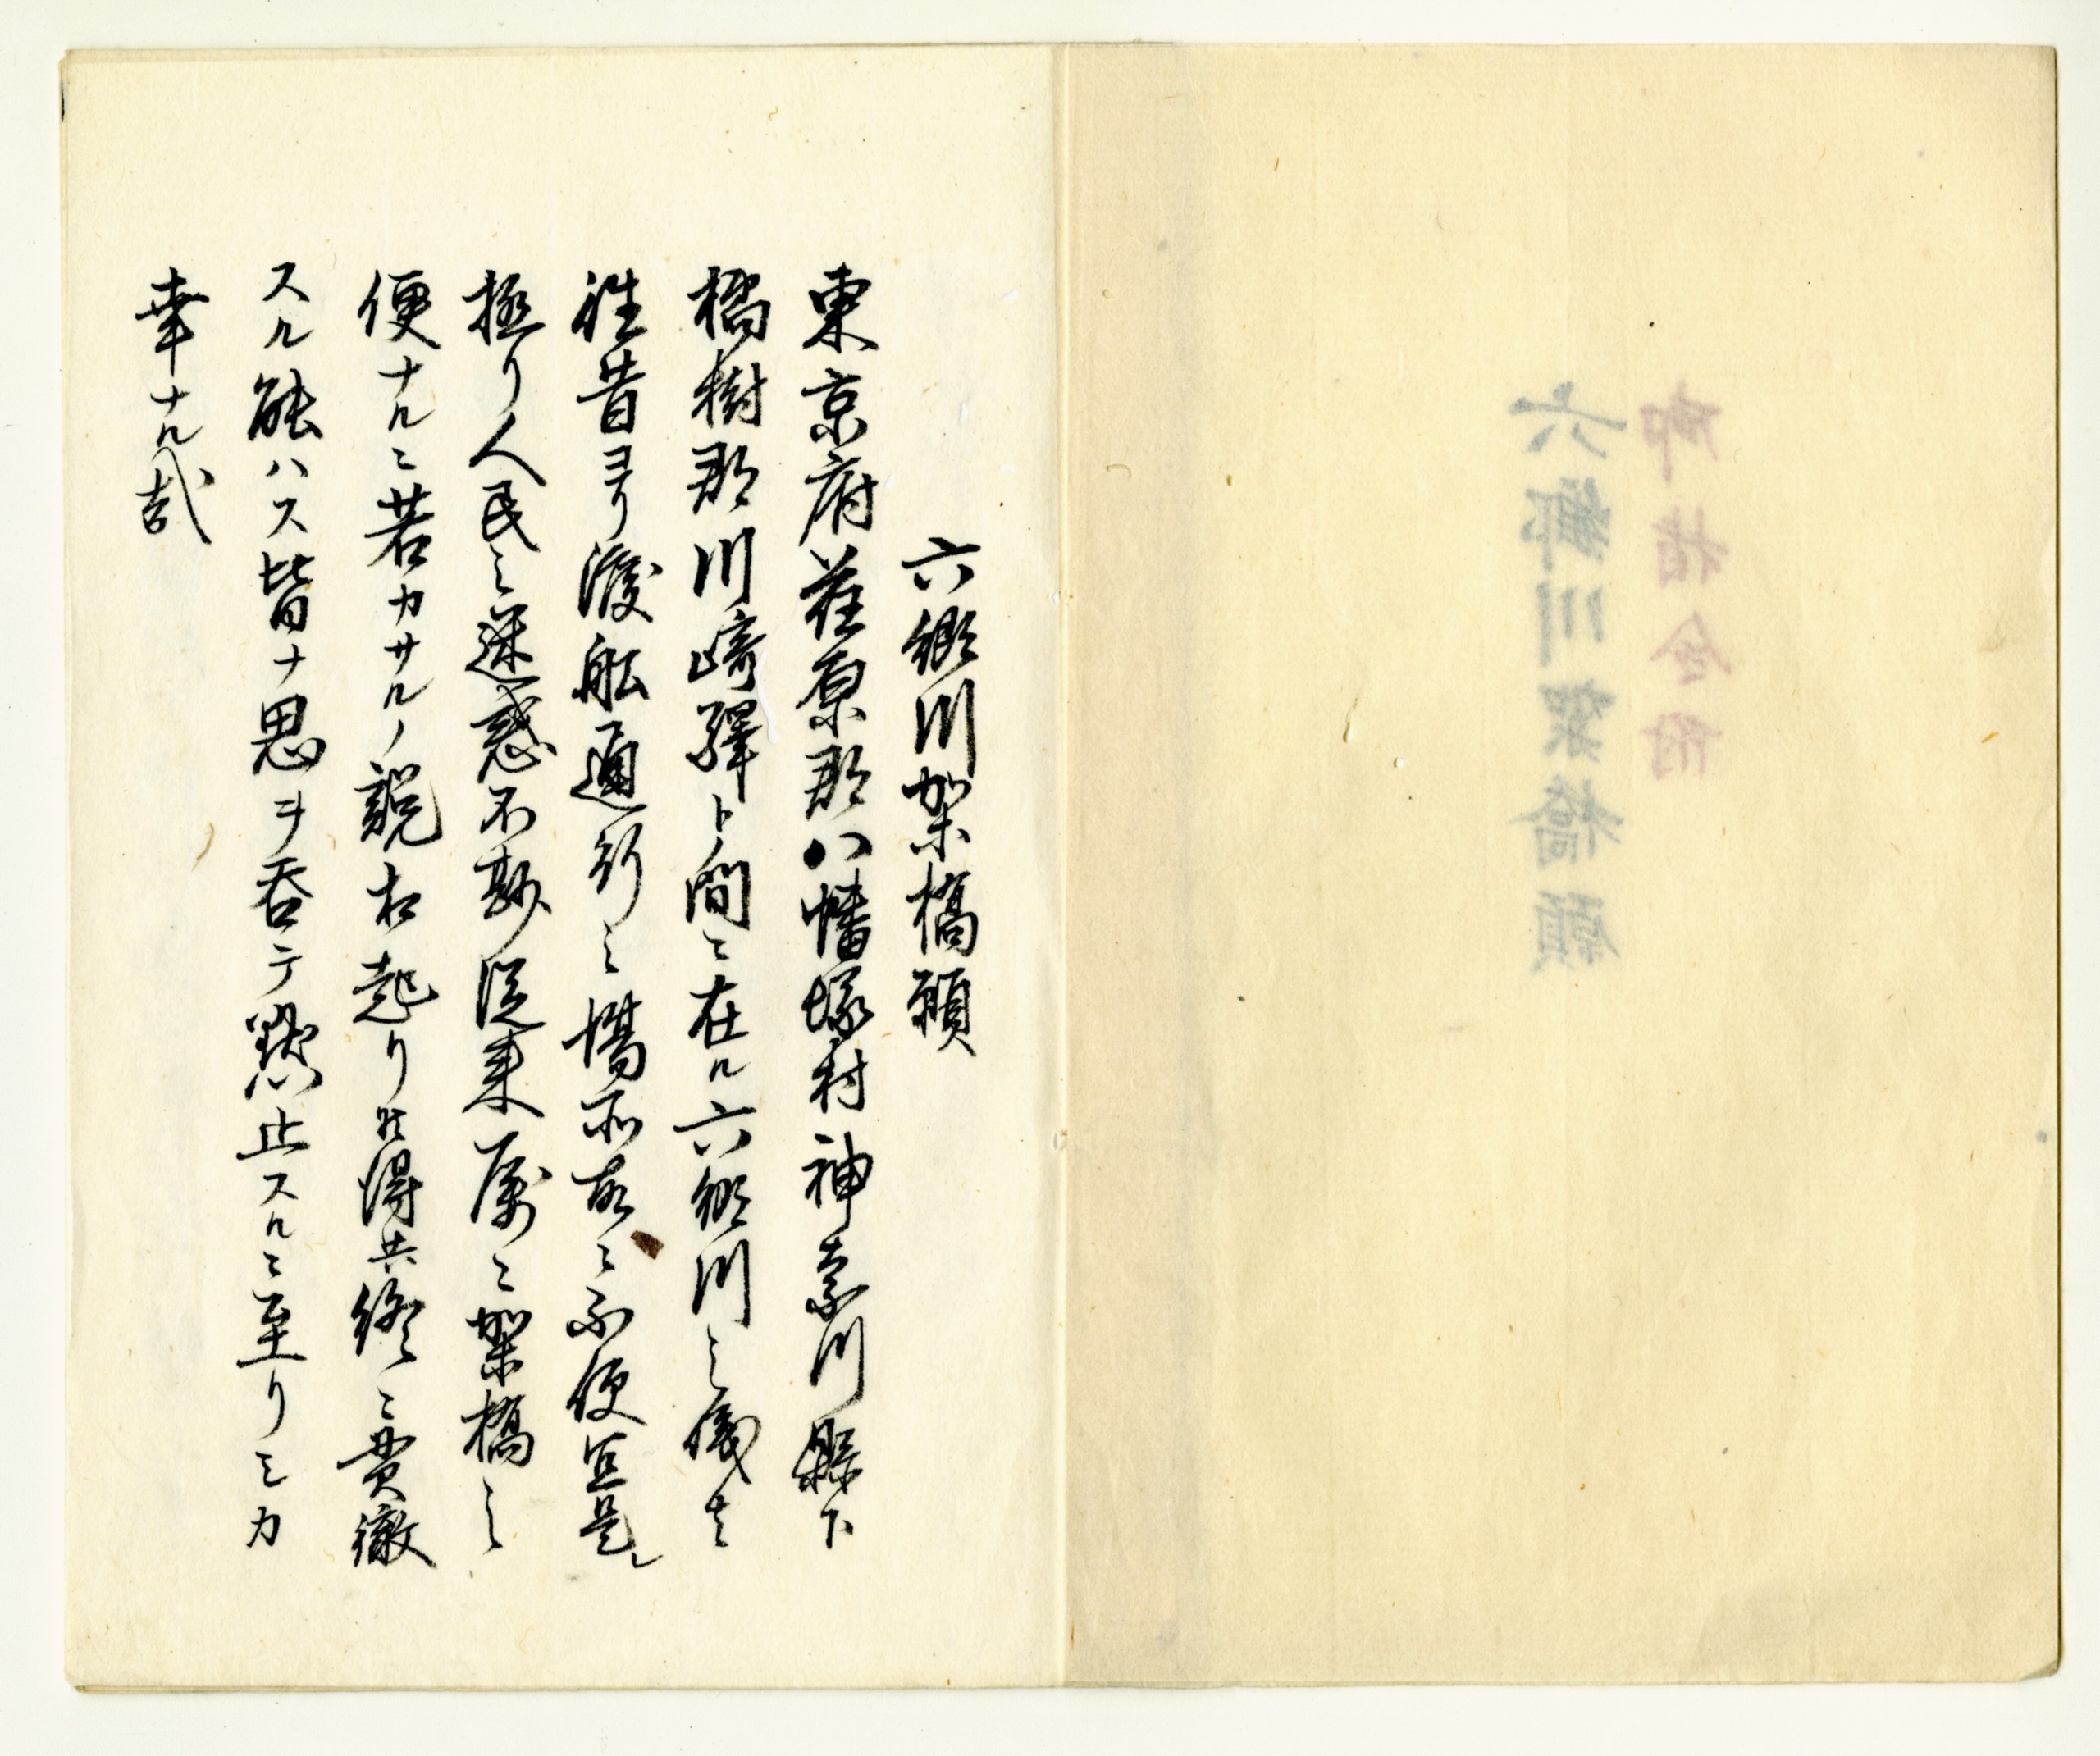 御指令附
六郷川架橋願
六郷川架橋願
東京府荏原郡八幡塚村神奈川縣下
橘樹郡川崎驛ト間ニ在ル六郷川之儀者
往昔ヨリ渡船通行之場所故ニ不便宜是レ
極リ人民之迷惑不尠従来屡ニ架橋之
便ナルニ若カサルノ説相起リ候得共終ニ貫徹
スル能ハス皆ナ思ヲ呑テ黙止スルニ至リシカ
幸ナル哉